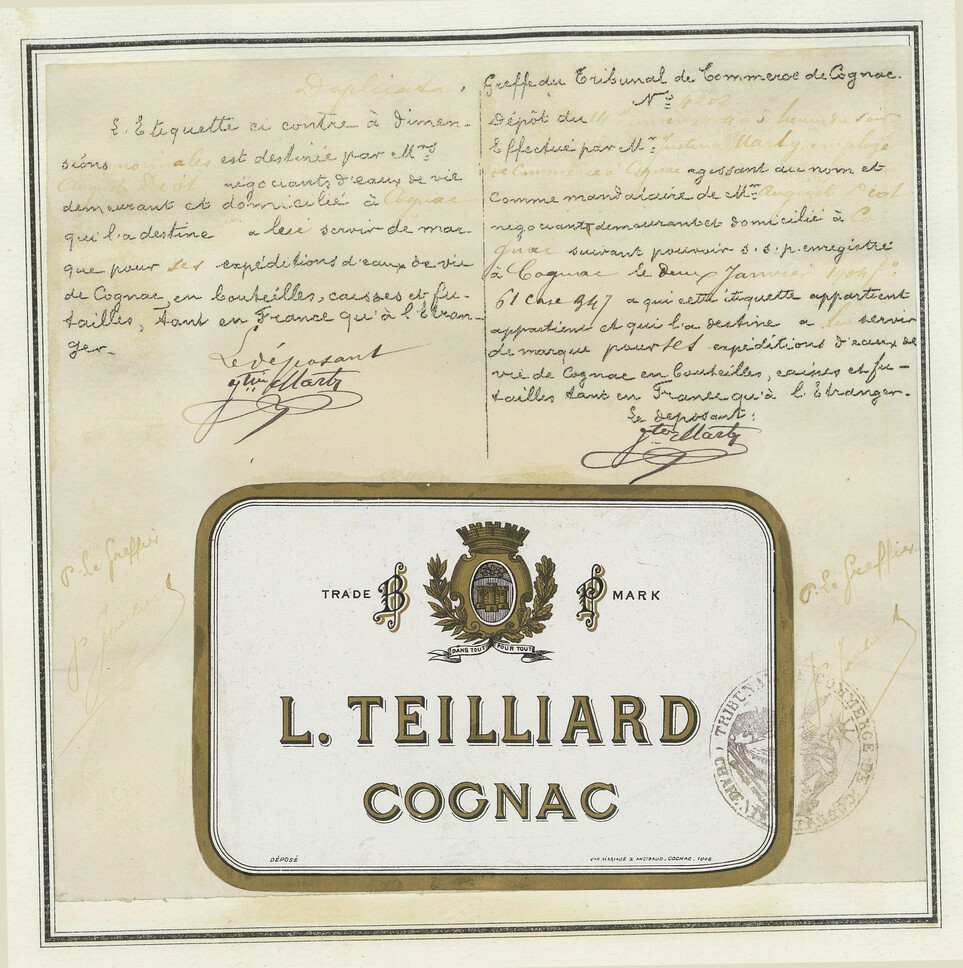 Duplicata
L'Etiquette ci contre à dimen-
sions normales est destinée par Mrs
August Diot négociants d'eaux de vie
demeurant et domicilié à Cognac
qui l'a destine a leur servir de mar-
que pour ses expéditions d'eaux de vie
de Cognac, en bouteilles, caisses et fu-
tailles, tant en France qu'à l'Etran-
ger.-
Le déposant
Marty
Greffe du Tribunal de Commerce de Cognac.
No 4202
Dépôt du heures du soir
Effectue par Mr Justin Marty employé
de Commerce à Cognac agissant au nom et
comme mandataire de Mr August Diot
negociant demeurant et domicilié à Co
gnac suivant pouvoir s.s.p. enregistré
à Cognac le deux Janvier 1904 fo
61 case 947 a qui cette étiquette appartient
appartient et qui l'a destine a lui servir
de marque pour ses expéditions d'eaux de
vie de Cognac en bouteilles, caisses et fu-
tailles tant en France qu'à l'Etranger.-
Le deposant:
Marty
P. Le Greffier
P. Le Greffier
TRADE B P MARK
DANS TOUT POUR TOUT
L. TEILLIARD
COGNAC
DÉPOSÉ
COGNAC
TRIBUNAL DE COMMERCE DE COGNAC